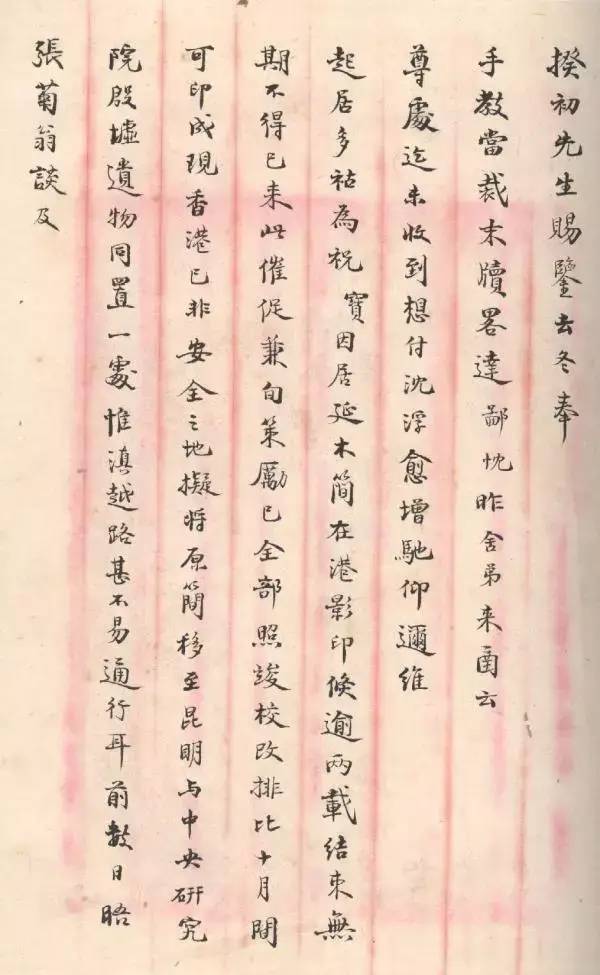 揆初先生賜鑒去冬奉
手教當裁末牘畧達鄙忱昨舍弟来函云
尊處迄未收到想付沈浮愈增馳仰邇維
起居多祜為祝寶因居延木簡在港影印倏逾兩載結束無
期不得已来此催促兼旬策厲已全部照竣校改排比十月間
可印成現香港已非安全之地擬將原簡移至昆明与中央研究
院殷墟遺物同置一處惟滇越路甚不易通行耳前數日晤
張菊翁談及